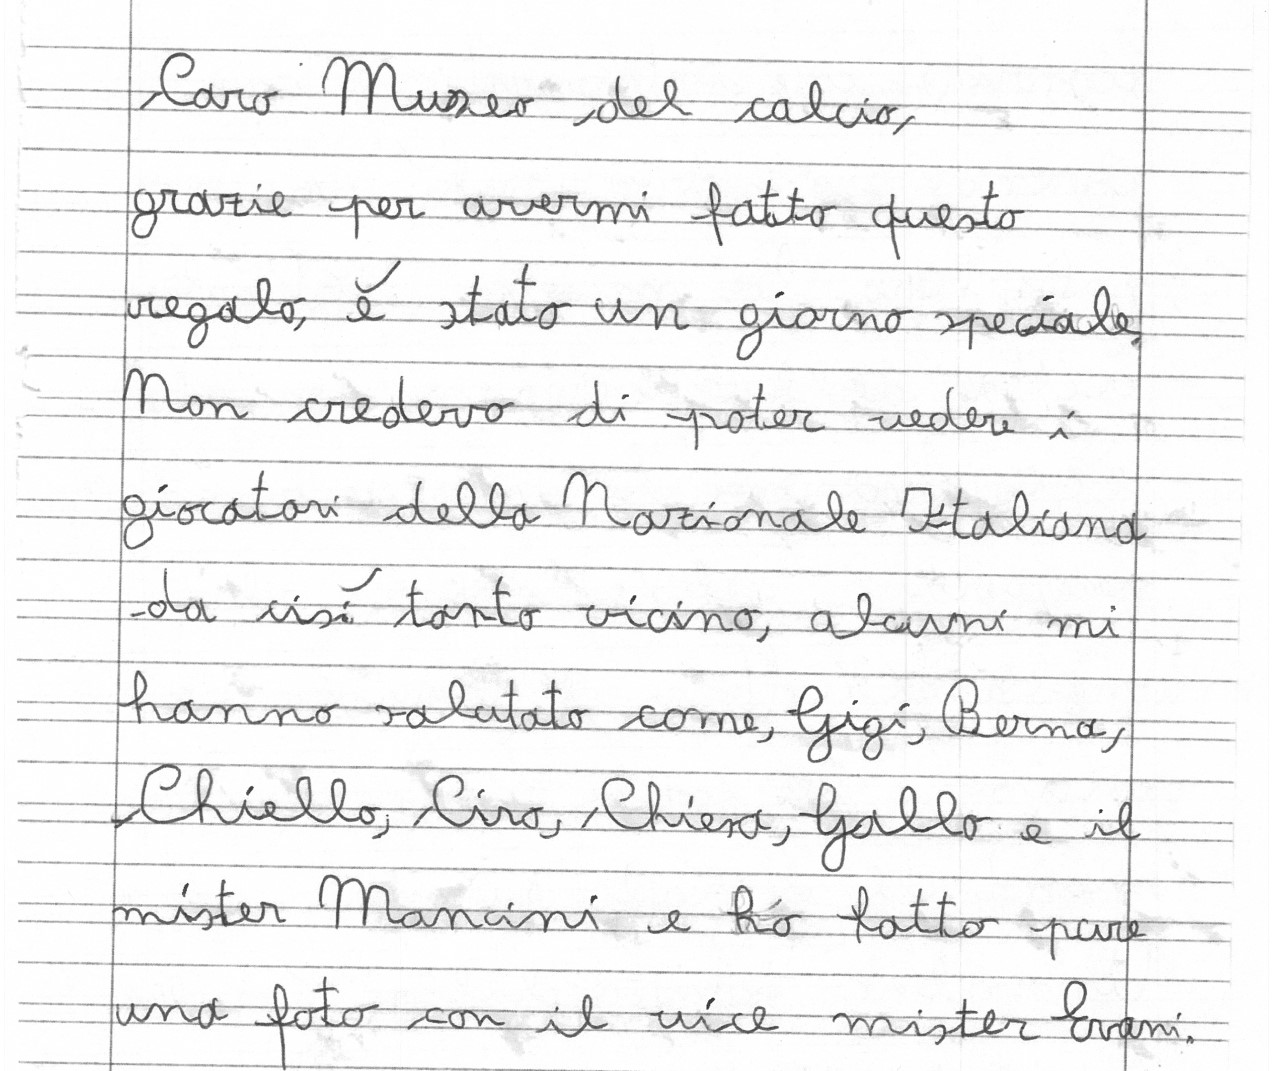 Caro Museo del calcio,
grazie per avermi fatto questo
regalo, è stato un giorno speciale.
Non credevo di poter vedere i
giocatori della Nazionale Italiana
da così tanto vicino, alcuni mi
hanno salutato come, Gigi, Berna,
Chiello, Ciro, Chiesa, Gallo e il
mister Mancini e hò fatto pure
una foto con il vice mister Evani.